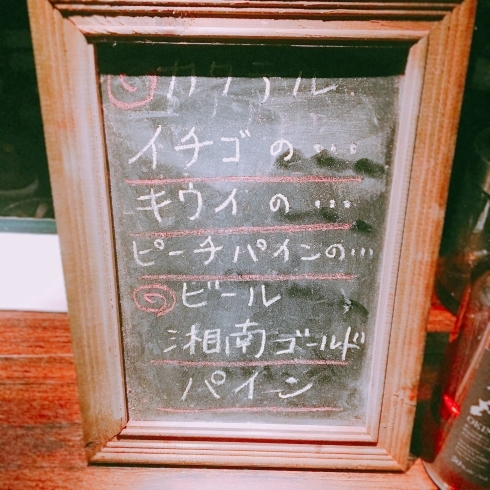 カクテル
イチゴの…
キウイの…
ピーチパインの…
ビール
湘南ゴールド
パイン